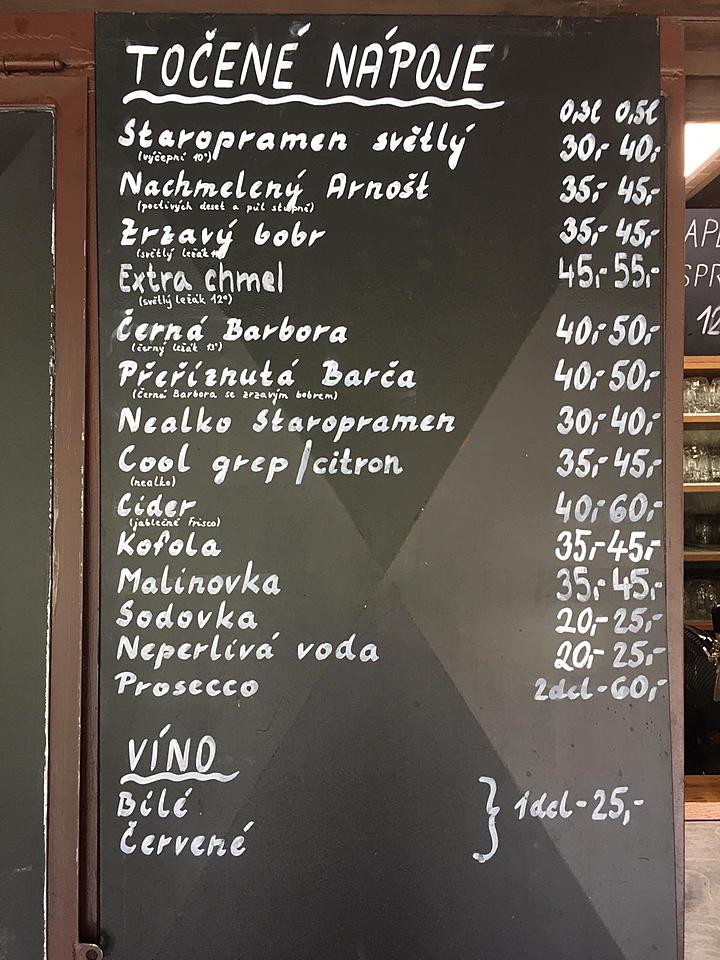 TOČENÉ NÁPOJE
0,3l 0,5l
Staropramen světlý 30,- 40,-
(výčepní 10°)
Nachmelený Arnošt 35,- 45,-
(poctivých deset a půl stupně)
Zrzavý bobr 35,- 45,-
(světlý ležák
Extra chmel 45,- 55,-
(světlý ležák 12°)
Černá Barbora 40,- 50,-
(černý ležák 13°)
Přeříznutá Barča 40,- 50,-
(černá Barbora se zrzavým bobrem)
Nealko Staropramen 30,- 40,-
Cool grep/citron 35,- 45,-
(nealko)
Cider 40,- 60,-
(jablečné Frisco)
Kofola 35,- 45,-
Malinovka 35,- 45,-
Sodovka 20,- 25,-
Neperlívá voda 20,- 25,-
Prosecco 2dcl - 60,-
VÍNO
Bílé
Červené } 1dcl - 25,-
APE
SPR
12